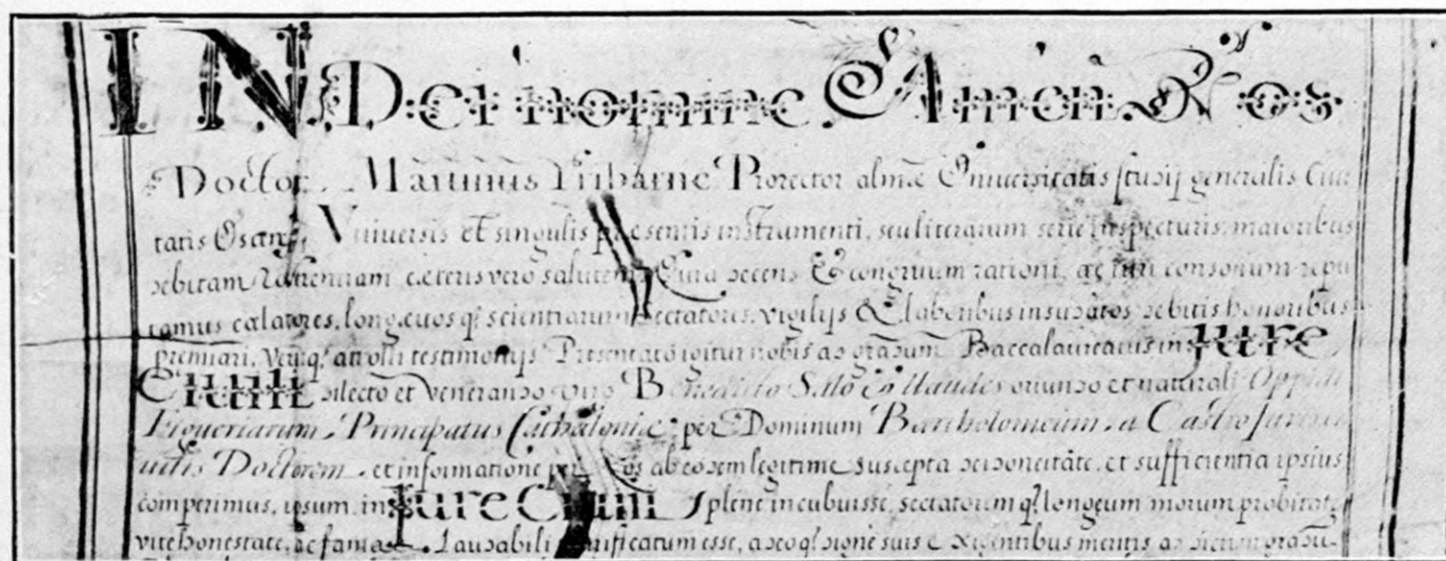 IN Dei nomine Amen. Nos
Doctor Martinus Prorector almæ Universitatis studij generalis Civi
tatis Oscæ, Vniversis et singulis præsentis instrumenti, seu literarum serie inspecturis, maioribus
debitam reverentiam cæteris vero salutem. Cum decens & congruum rationi, ac iuri consonum repu
tamus longævos q; scientiarum sectatores, vigilijs & laboribus insudatos debitis honoribus
premiari, attolli testimonijs Presentato igitur nobis ad gradum Baccalaureatus in Iure
Civili dilecto et venerando viro oriundo et naturali Oppidi
Figueriarum, Principatus Cathaloniæ per Dominum Bartholomeum a Castro Iuris
uilis Doctorem, et informatione per Nos ab eodem legitime suscepta de idoneitate, et sufficientia ipsius
comperimus, ipsum in Iure Civili plene incubuisse, sectatorum q; longeum morum probitate
vite honestate, ac fama laudabili esse, adeo q; digne suis exigentibus meritis ad dictum gradu